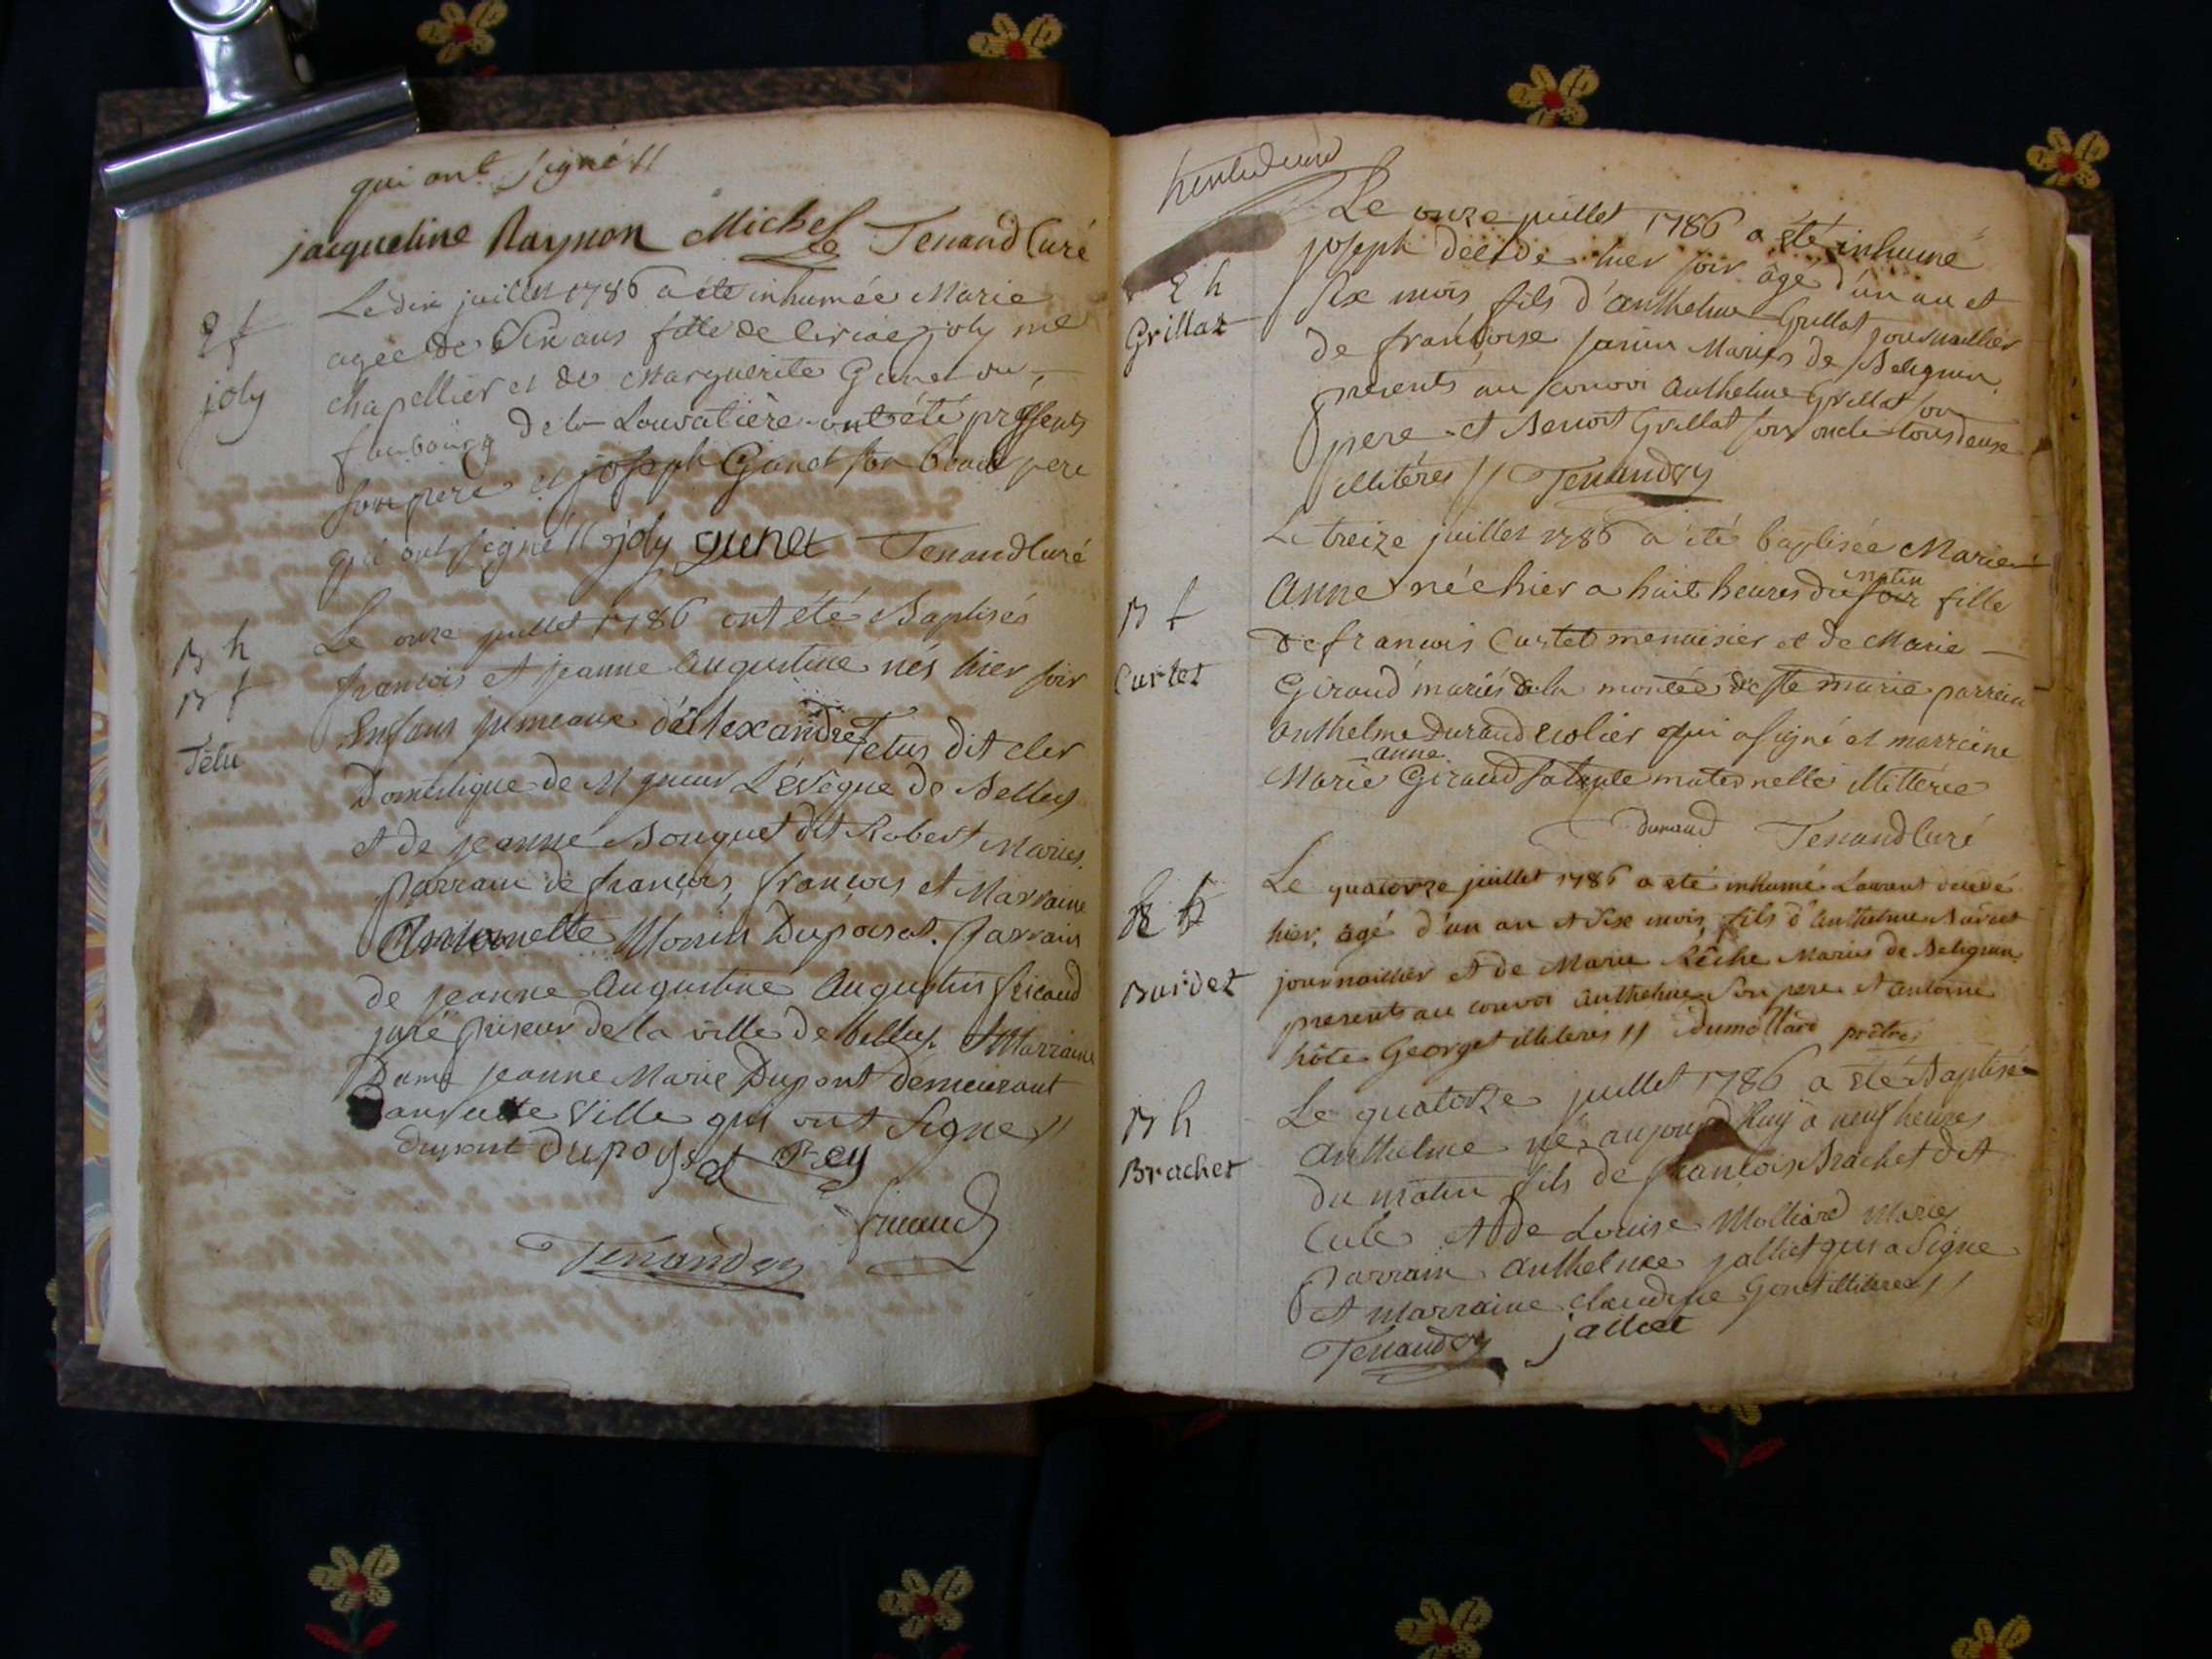 qui ont signé //
jacqueline Raymon Michel Tenand Curé
Le dix juillet 1786 a été inhumée Marie
agée de Six ans fille de joly me
chapellier et de Marguerite Gunet du
faubourg de la Louvatière ont été pressents
son pere et joseph Gunet son beau pere
qui ont signé // joly gunet Tenand Curé
joly
B h
B f
Tétu
Le onze juillet 1786 ont été Baptisés
françois et jeanne Augustine nés hier soir
Enfans jumeaux d'Alexandre Tetus dit cler
Domestique de Mgneur L'évêque de Belley
et de jeanne Bouquet dit Robert Mariés
Parrain de françois, françois et Marraine
Antoinette Monin Dupoisat. Parrain
de jeanne Augustine Augustin
juré priseur de la ville de belley. Et Marraine
Dame jeanne Marie Dupont demeurant
dans cette Ville qui ont Signé //
Dupont dupoysat Rey
Tenand Cy
h
Grillaz
Le onze juillet 1786 a été inhumé
joseph décédé hier soir âgé d'un an et
six mois fils d'anthelme Grillat journaillier
de françoise janin Mariés de Belignin
presents au convoi Anthelme Grillat son
pere et Benoit Grillat son oncle tous deux
illitéres // Tenand Cy
B f
Curtet
Le treize juillet 1786 a été baptisée Marie
Anne née hier a huit heures du soir matin fille
de francois Curtet menuisier et de Marie
Giraud mariés de la montée de Ste marie parrein
anthelme Durand Ecolier qui a signé et marreine
Marie anne Giraud sa tante maternelle illittérée
Durand Tenand Curé
Burdet
Le quatorze juillet 1786 a eté inhumé Laurent décédé
hier, agé d'un an et six mois, fils d'Anthelme Burdet
journaillier et de Marie Rêche Mariés de Belignin
presents au convoi anthelme Son pere et antoine
hôte Georget illiterés // Dumollard prêtre
B h
Brachet
Le quatorze juillet 1786 a été Baptisé
Anthelme né aujourd'huy à neuf heures
du matin fils de françois Brachet dit
Cule et de Louise Molliard Mariés
Parrain Anthelme jalliet qui a Signé
et Marraine claudine Gonet illiterée //
Tenand Cy jalliet